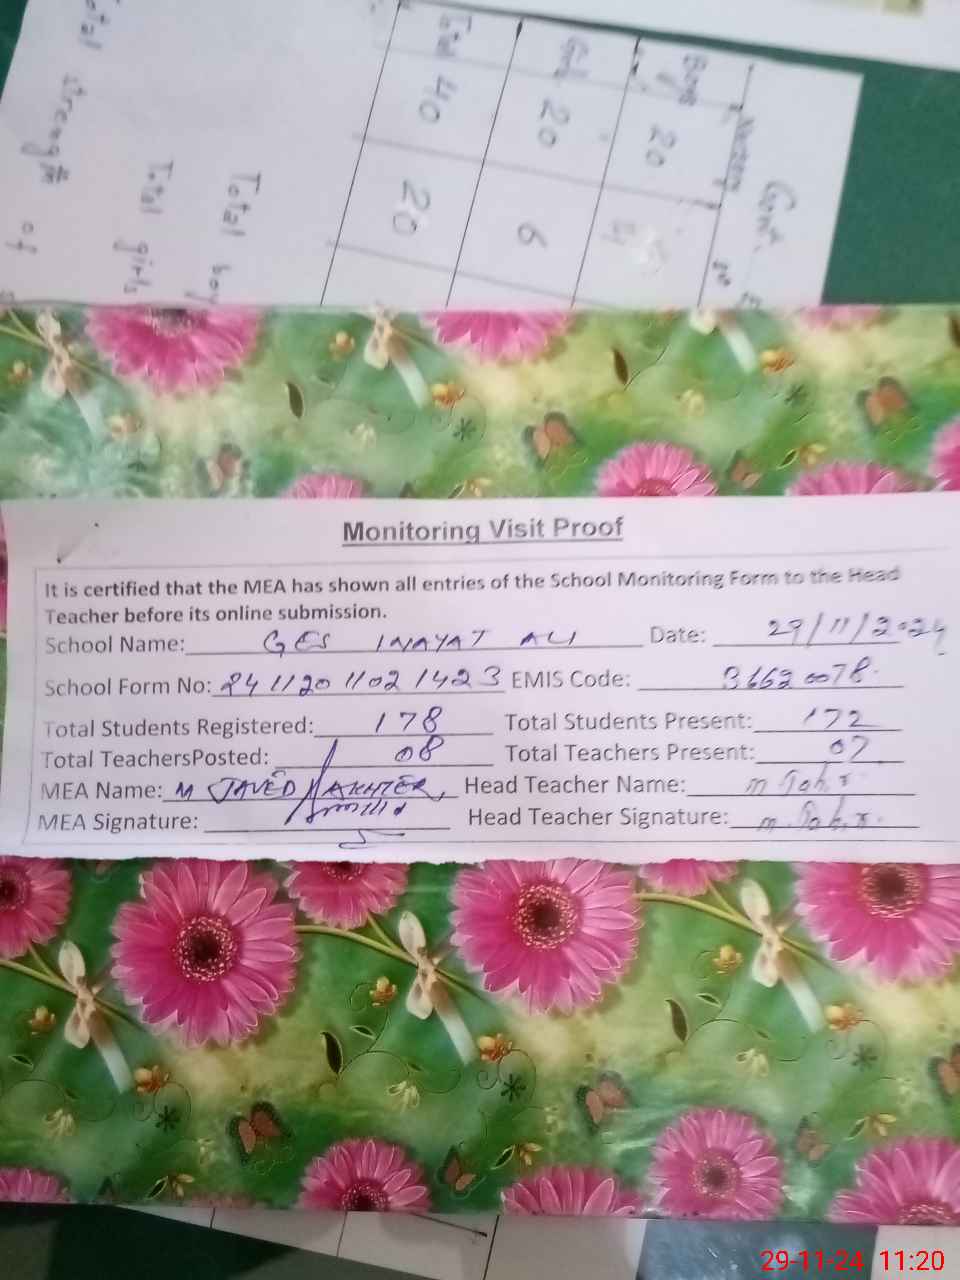 Total strength of
Total girls
Total boy
Total 40 20
Girls 20 6
Boys 20
Nursery
Govt.
Monitoring Visit Proof
It is certified that the MEA has shown all entries of the School Monitoring Form to the Head
Teacher before its online submission.
School Name: GES INAYAT ALI Date: 29/11/2024
School Form No: 24112011021423 EMIS Code: 36620078.
Total Students Registered: 178 Total Students Present: 172
Total TeachersPosted: 08 Total Teachers Present: 07
MEA Name: M JAVED AKHTER Head Teacher Name: m
MEA Signature: Head Teacher Signature: m.
29-11-24 11:20